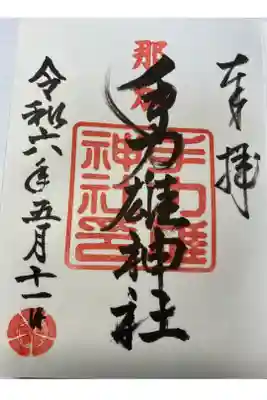 奉拝
那加
手力雄神社
手力雄
神社印
令和六年五月十一日